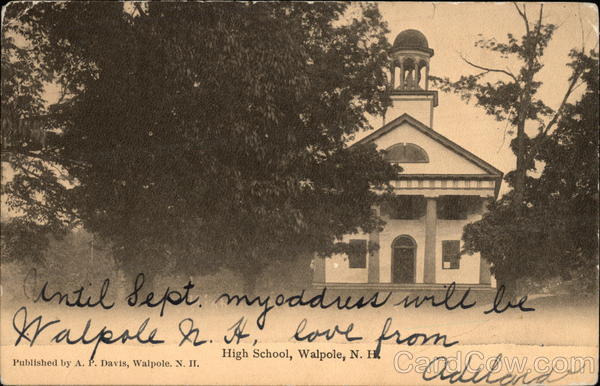 Until Sept. my address will be
Walpole N. H. love from
High School, Walpole, N. H.
Published by A. P. Davis, Walpole. N. H.
CardCow.com